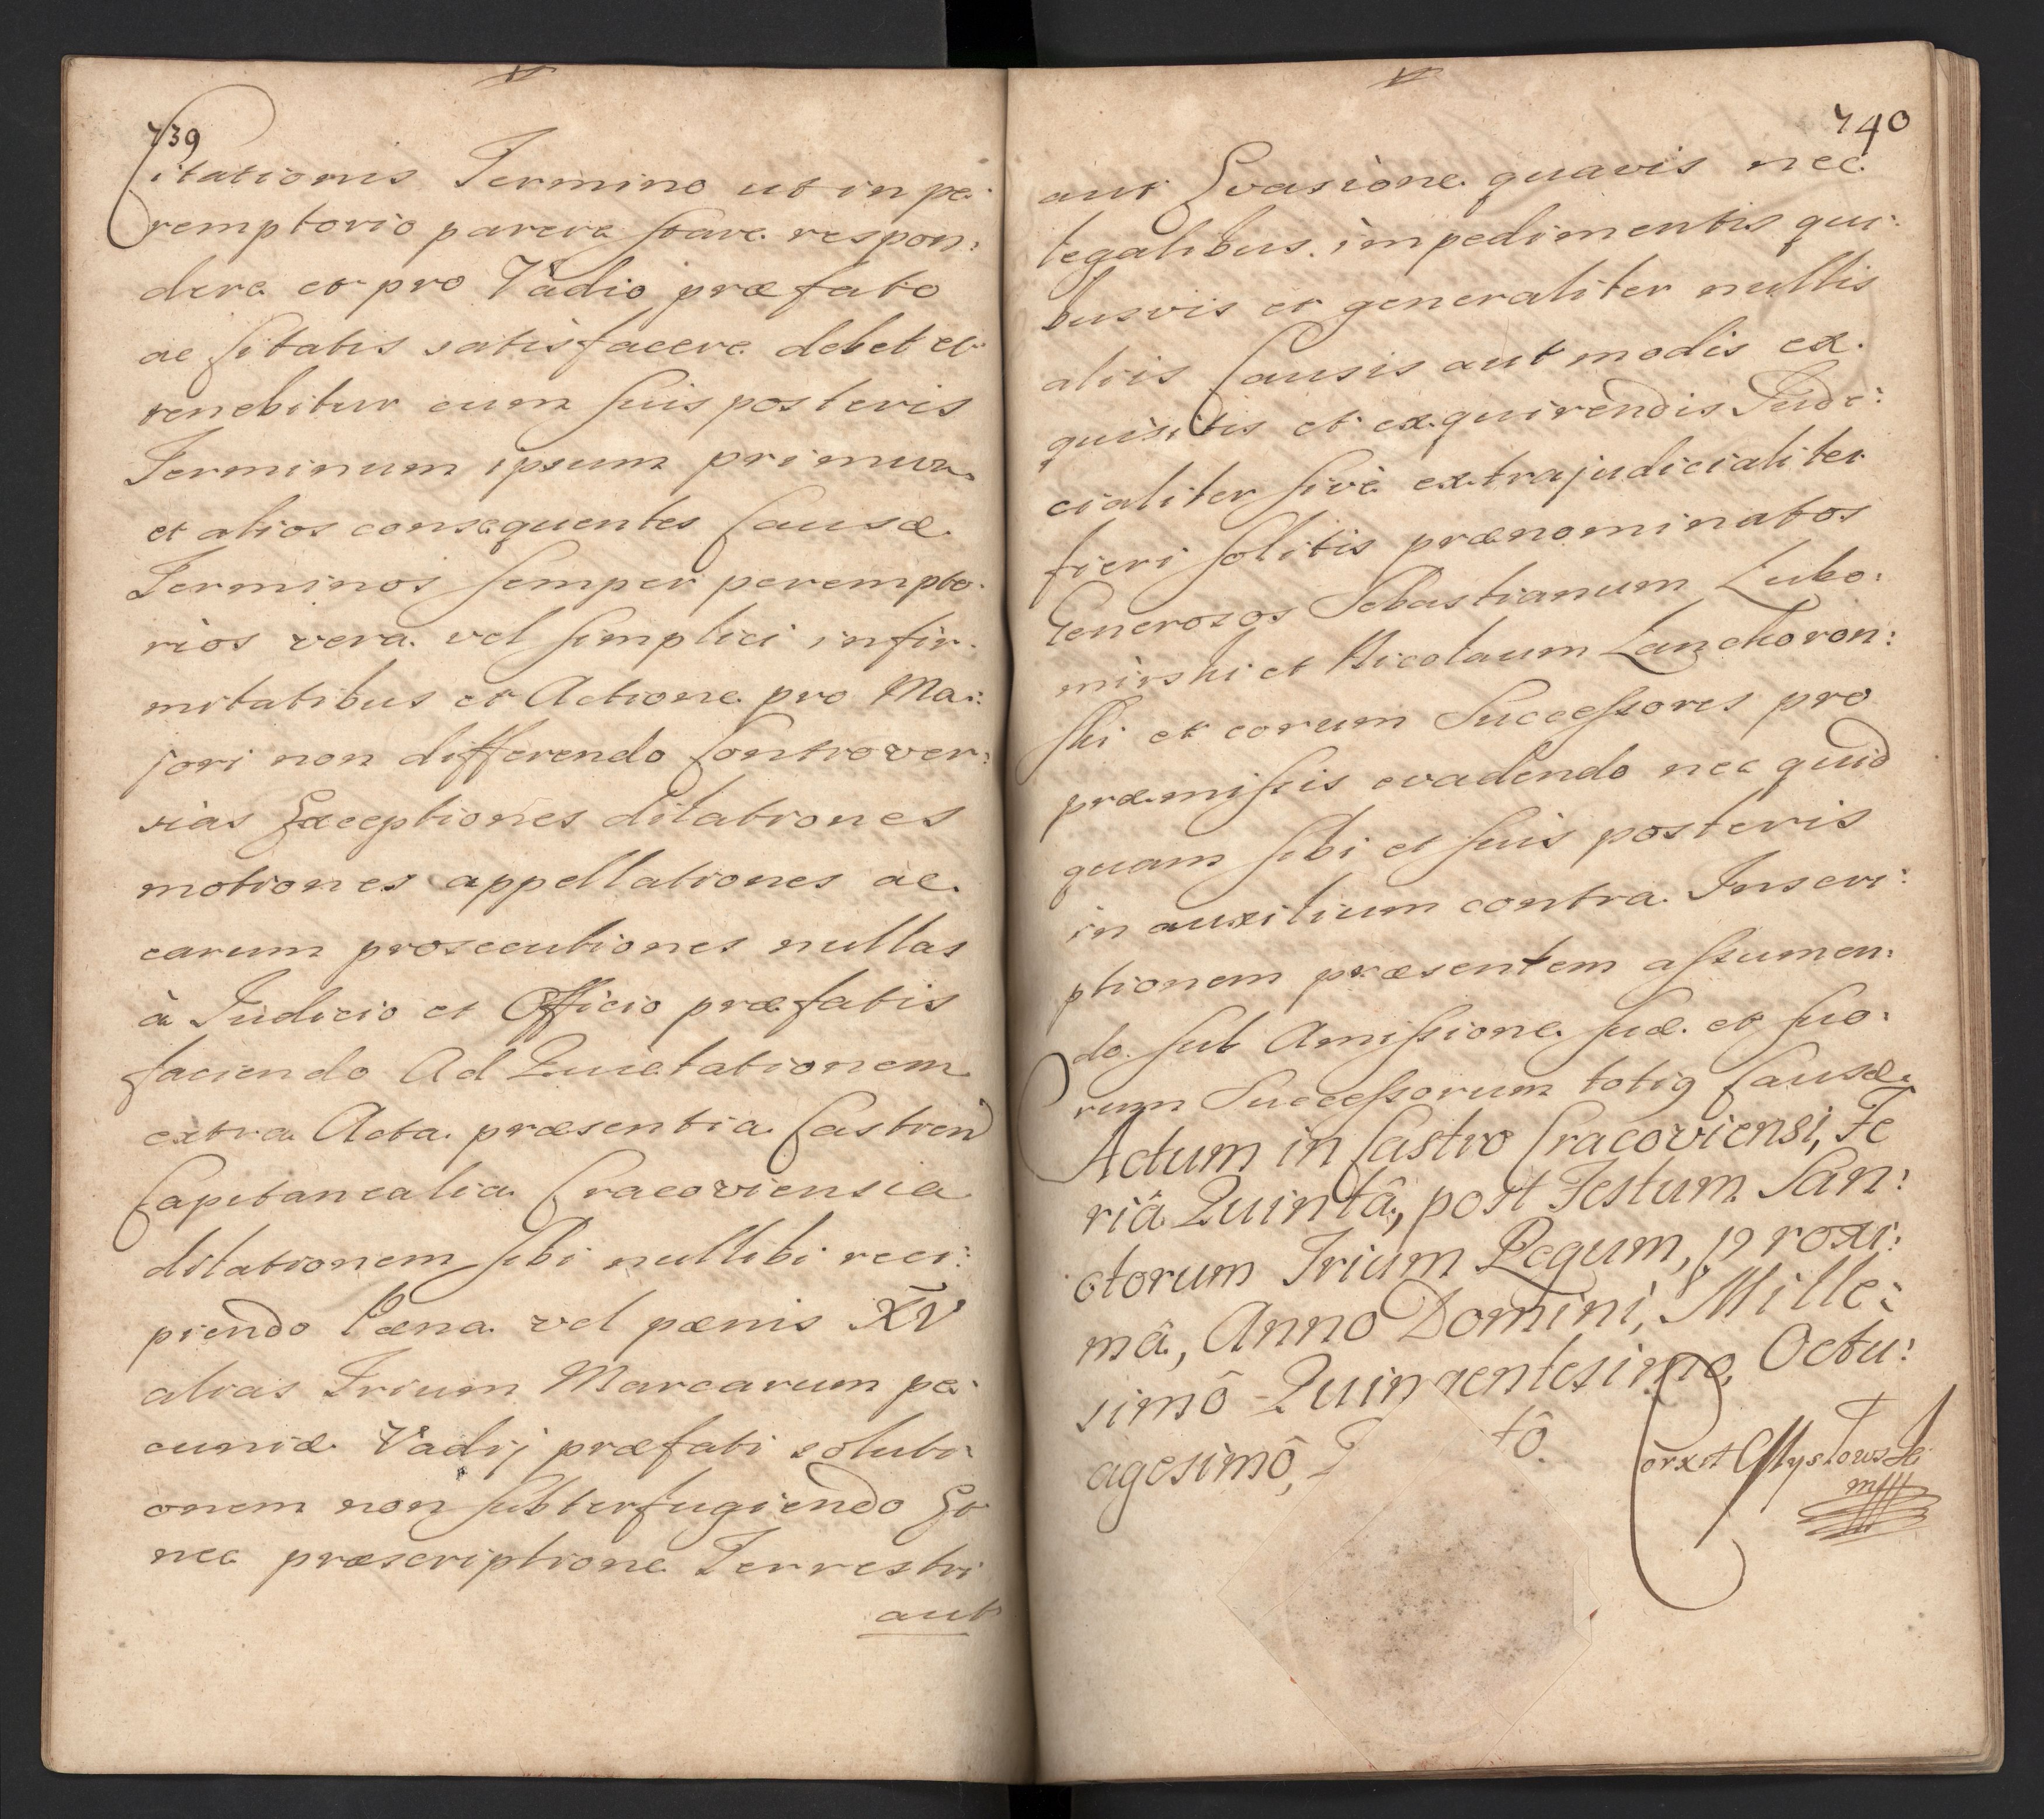 739
Citationis Termino ut in pe:
remptorio parere stare respon:
dere et pro Vadio præfato
ac citatis satisfacere debet et
tenebitur cum suis posteris
Terminum ipsum primum
et alios consequentes Causæ
Terminos semper perempto:
rios vera vel simplici infir:
mitatibus et Actione pro Ma:
jori non differendo Controver:
sias Exceptiones dilationes
motiones appellationes ac
earum prosecutiones nullas
à Judicio et Officio præfatis
faciendo Ad Quietationem
extra Acta præsentia Castren
Capitanealia Cracoviensia
dilationem sibi nullibi reci:
piendo Pæna vel pænis XV
alias Trium Marcarum pe:
cuniæ Vadij præfati soluti:
onem non subterfugiendo Et
nec præscriptione Terrestri
aut
740
aut Evasione quavis nec
legalibus impedimentis qui:
busvis et generaliter nullis
aliis Causis aut modis ex:
quisitis et exquirendis Judi:
cialiter sive extrajudicialiter
fieri solitis prænominatos
Generosos Sebastianum Lubo:
mirski et Nicolaum Lanckoron:
ski et eorum Successores pro
præmissis evadendo nec quid
quam sibi et suis posteris
in auxilium contra Inscri:
ptionem præsentem assumen:
do sub Amissione suæ et suo:
rum Successorum totiq Causæ.
Actum in Castro Cracoviensi, Fe
riâ Quintâ, post Festum San:
ctorum Trium Regum, proxi:
mâ, Anno Domini, Mille:
simô Quingentesimo, Octu:
agesimô, tô.
Corxit Mysłowski
mpp